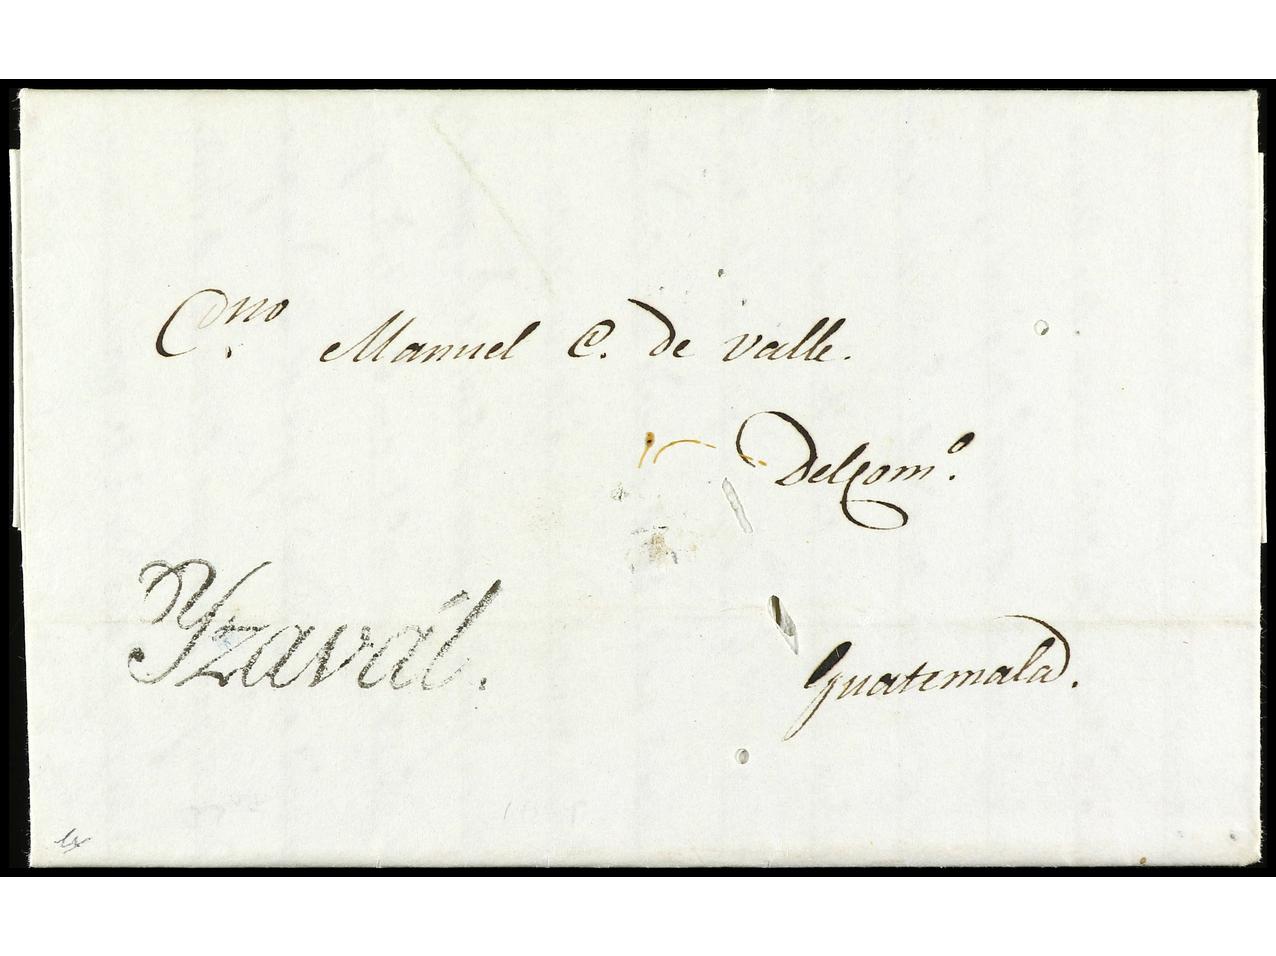 C.dno Manuel C. de Valle.
Del Com.o
Yzavál.
Guatemala.